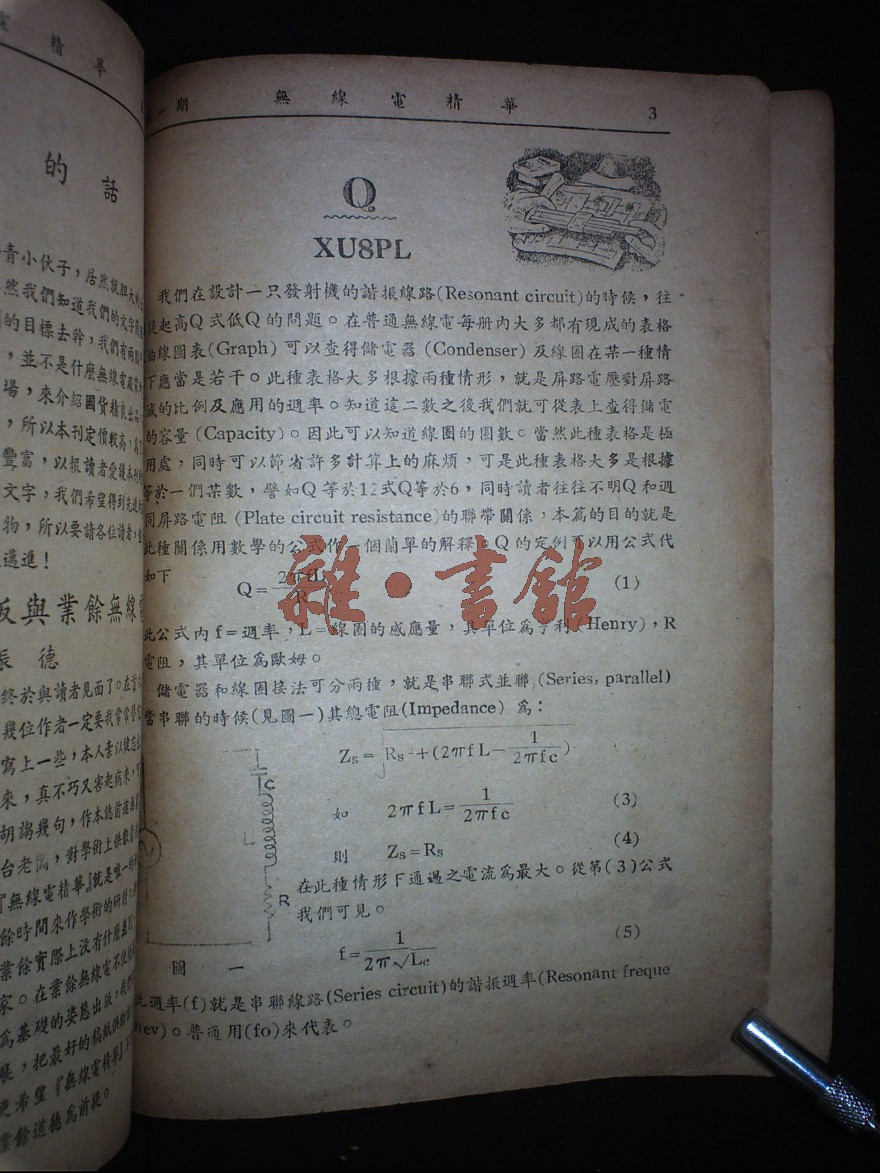 精華
的話
青小伙子，居然就胆大
然我們知道我們的文字
的目標去幹，我們有兩
，並不是什麼無線電
場，來介紹國貨精良出品
，所以本刊定價較高，
豐富，以報讀者愛護本刊
文字，我們希望得到先進
物，所以要請各位讀者，
邁進！
與業餘無線
張德
終於與讀者見面了。在
幾位作者一定要我常常
寫上一些，本人素以
來，真不巧又害起病來，
胡謅幾句，作本誌前
台老闆，對學術上供獻
『無線電精華』就是唯一的
餘時間來作學術的研討
業餘實際上沒有什麼
家。在業餘無線電不
為基礎的姿態出版，我們
展，把最好的稿紙供給
更希望『無線電精華』
業餘道德為前提。
一期 無線電精華 3
Q
XU8PL
我們在設計一只發射機的諧振線路(Resonant circuit)的時候，往
提起高Q式低Q的問題。在普通無線電每册內大多都有現成的表格
線圖表(Graph) 可以查得儲電器 (Condenser) 及線圈在某一種情
下應當是若干。此種表格大多根據兩種情形，就是屏路電壓對屏路
的比例及應用的週率。知道這二數之後我們就可從表上查得儲電
的容量 (Capacity)。因此可以知道線圈的圈數。當然此種表格是極
用處，同時可以節省許多計算上的麻煩，可是此種表格大多是根據
等於一們某數，譬如Q 等於12式Q等於6，同時讀者往往不明Q 和週
同屏路電阻 (Plate circuit resistance)的聯帶關係，本篇的目的就是
此種關係用數學的公式作一個蘭單的解釋。Q的定例可以用公式代
如下
Q=2πfL/R (1)
雜·書館
此公式內 f=週率，L=線圈的感應量，其單位為亨利(Henry)，R
電阻，其單位為歐姆。
儲電器和線圈接法可分兩種，就是串聯式並聯 (Series, parallel)
當串聯的時候(見圖一)其總電阻(Impedance) 為：
Zs=√Rs²+(2πfL−1/2πfc)
C
L
R
如 2πfL=1/2πfc (3)
則 Zs=Rs (4)
在此種情形下通過之電流為最大。從第(3)公式
我們可見。
f=1/2π√Lc (5)
圖一
此週率(f)就是串聯線路(Series circuit)的諧振週率(Resonant freque
ney)。普通用(fo)來代表。